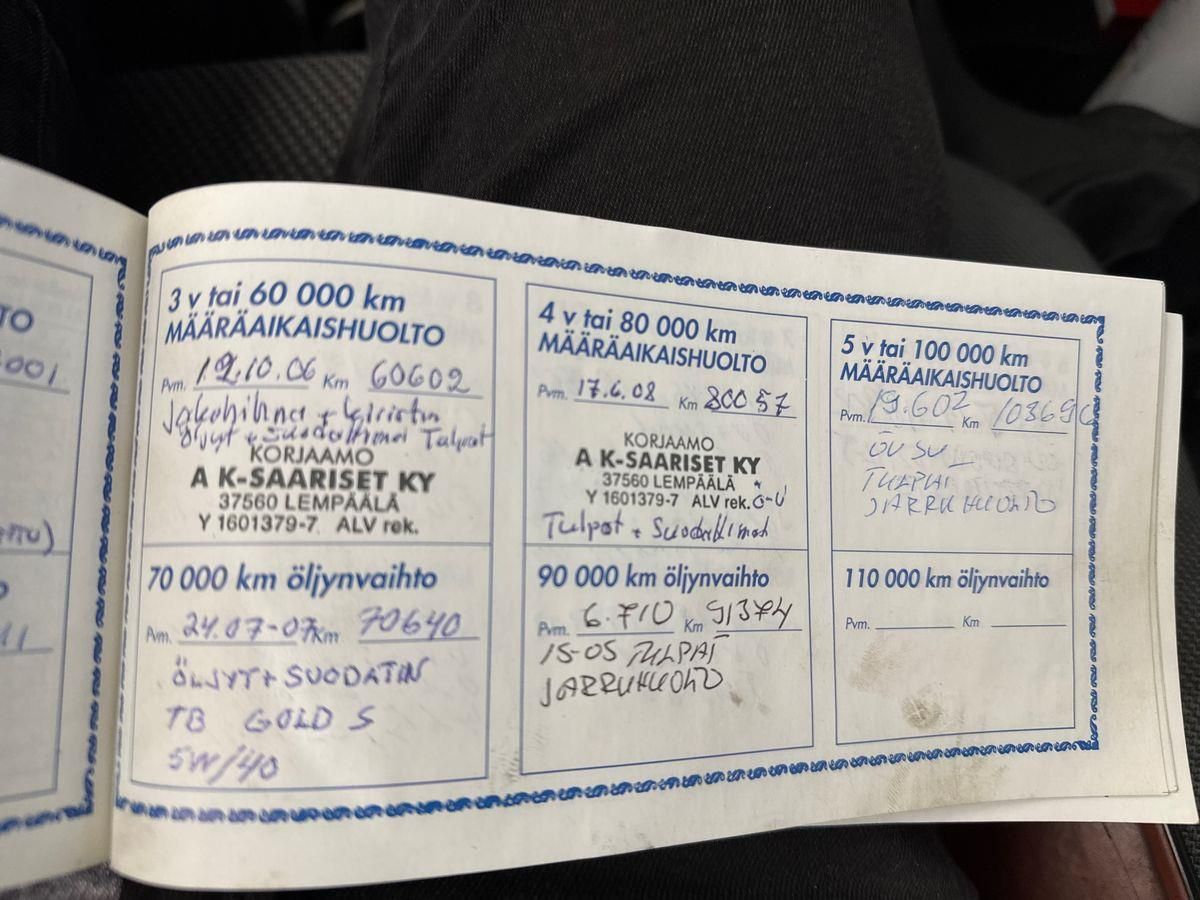 TO
3 v tai 60 000 km
MÄÄRÄAIKAISHUOLTO
Pvm. 12.10.06 Km 60602
Jakohihna + kiristin
öljyt + suodattimet Tulpat
KORJAAMO
A K-SAARISET KY
37560 LEMPÄÄLÄ
Y 1601379-7 ALV rek.
70 000 km öljynvaihto
Pvm. 24.07-07 Km 70640
ÖLJYT + SUODATIN
TB GOLD S
5W/40
4 v tai 80 000 km
MÄÄRÄAIKAISHUOLTO
Pvm. 17.6.08 Km 80057
KORJAAMO
A K-SAARISET KY
37560 LEMPÄÄLÄ
Y 1601379-7 ALV rek.
Tulpat + Suodattimet
90 000 km öljynvaihto
Pvm. 6.710 Km 91374
15-05 TULPAT
JARRUHUOLTO
5 v tai 100 000 km
MÄÄRÄAIKAISHUOLTO
Pvm. Km
TULPAT
JARRUHUOLTO
110 000 km öljynvaihto
Pvm. Km